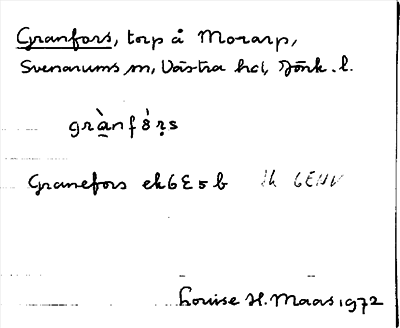 Granfors, torp å Morarp,
Svenarums sn, Västra hd, Jönk. l.
grànfȯ̀rs
Granefors ek 6E5b 6ENV
Louise H. Maas 1972